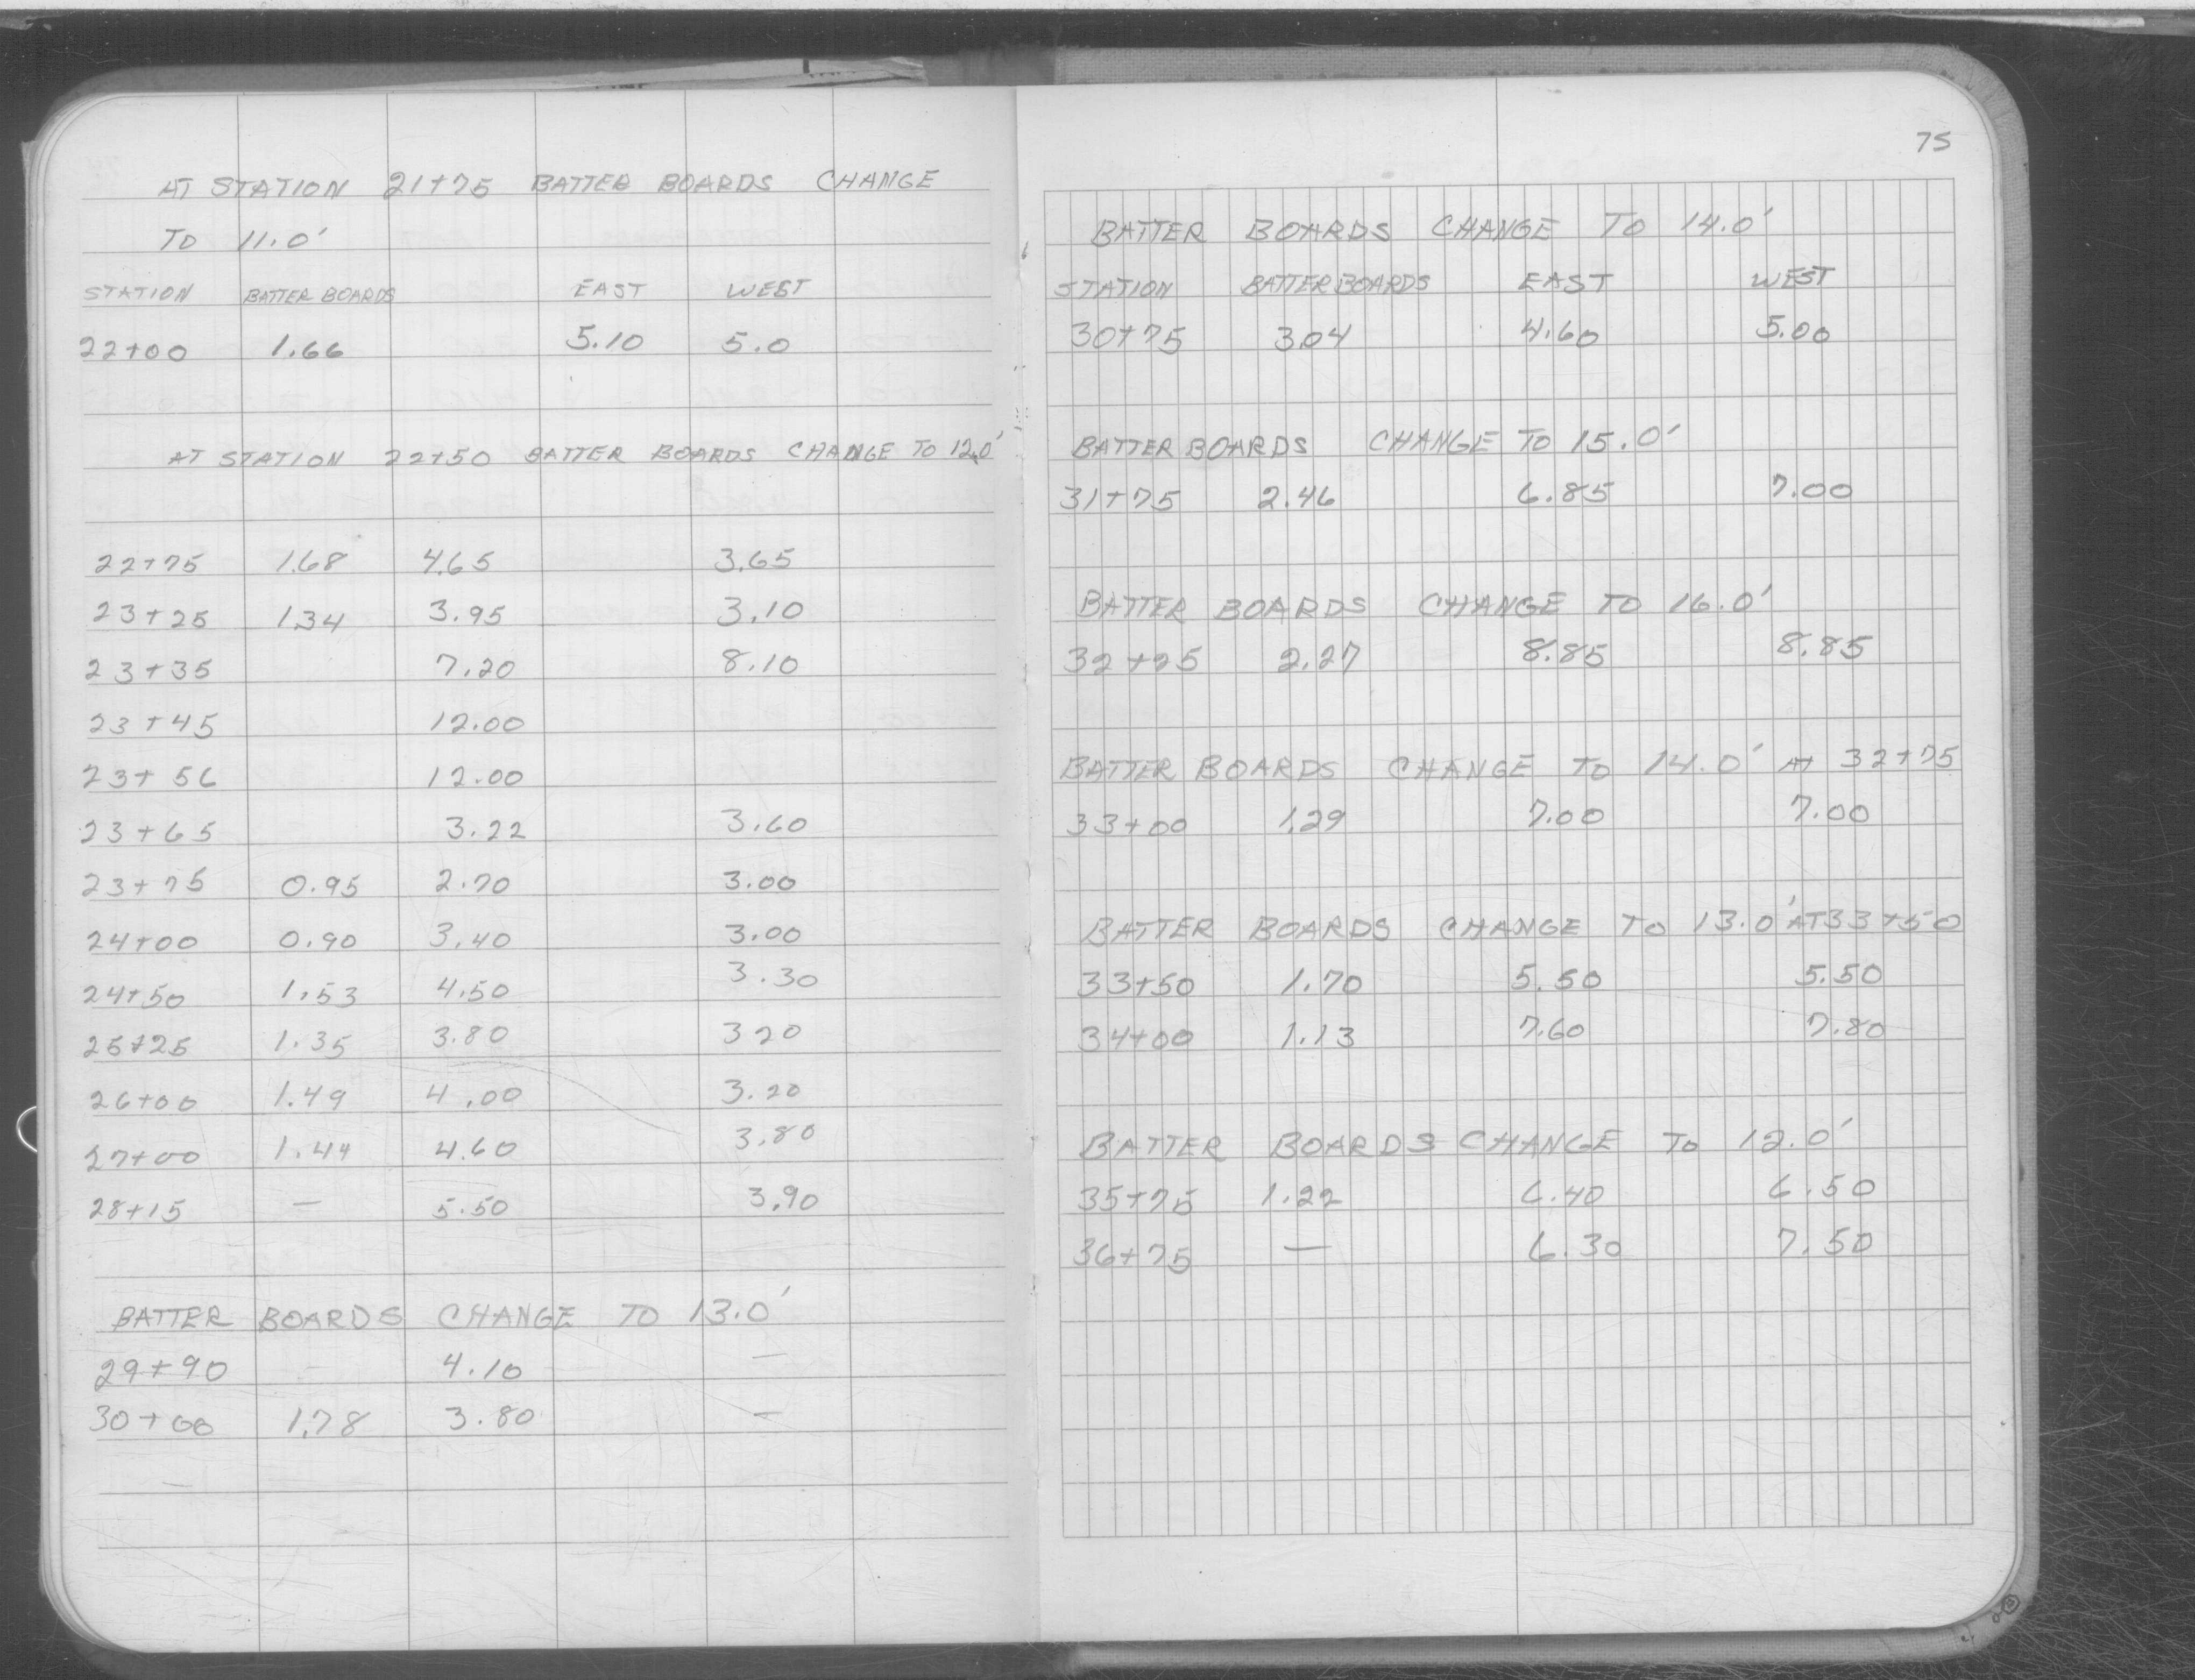 AT STATION 21+75 BATTER BOARDS CHANGE
TO 11.0'
STATION BATTER BOARDS EAST WEST
22+00 1.66 5.10 5.0
AT STATION 22+50 BATTER BOARDS CHANGE TO 12.0'
22+75 1.68 4.65 3.65
23+25 1.34 3.95 3.10
23+35 7.20 8.10
23+45 12.00
23+56 12.00
23+65 3.22 3.60
23+75 0.95 2.70 3.00
24+00 0.90 3.40 3.00
24+50 1.53 4.50 3.30
25+25 1.35 3.80 3 20
26+00 1.49 4.00 3.20
27+00 1.44 4.60 3.80
28+15 — 5.50 3.90
BATTER BOARDS CHANGE TO 13.0'
29+90 — 4.10 —
30+00 1.78 3.80 —
75
BATTER BOARDS CHANGE TO 14.0'
STATION BATTER BOARDS EAST WEST
30+75 3.04 4.60 5.00
BATTER BOARDS CHANGE TO 15.0'
31+75 2.46 6.85 7.00
BATTER BOARDS CHANGE TO 16.0'
32+25 2.27 8.85 8.85
BATTER BOARDS CHANGE TO 14.0' AT 32+75
33+00 1.29 7.00 7.00
BATTER BOARDS CHANGE TO 13.0' AT 33+50
33+50 1.70 5.50 5.50
34+00 1.13 7.60 7.80
BATTER BOARDS CHANGE TO 12.0'
35+75 1.22 6.40 6.50
36+75 — 6.30 7.50